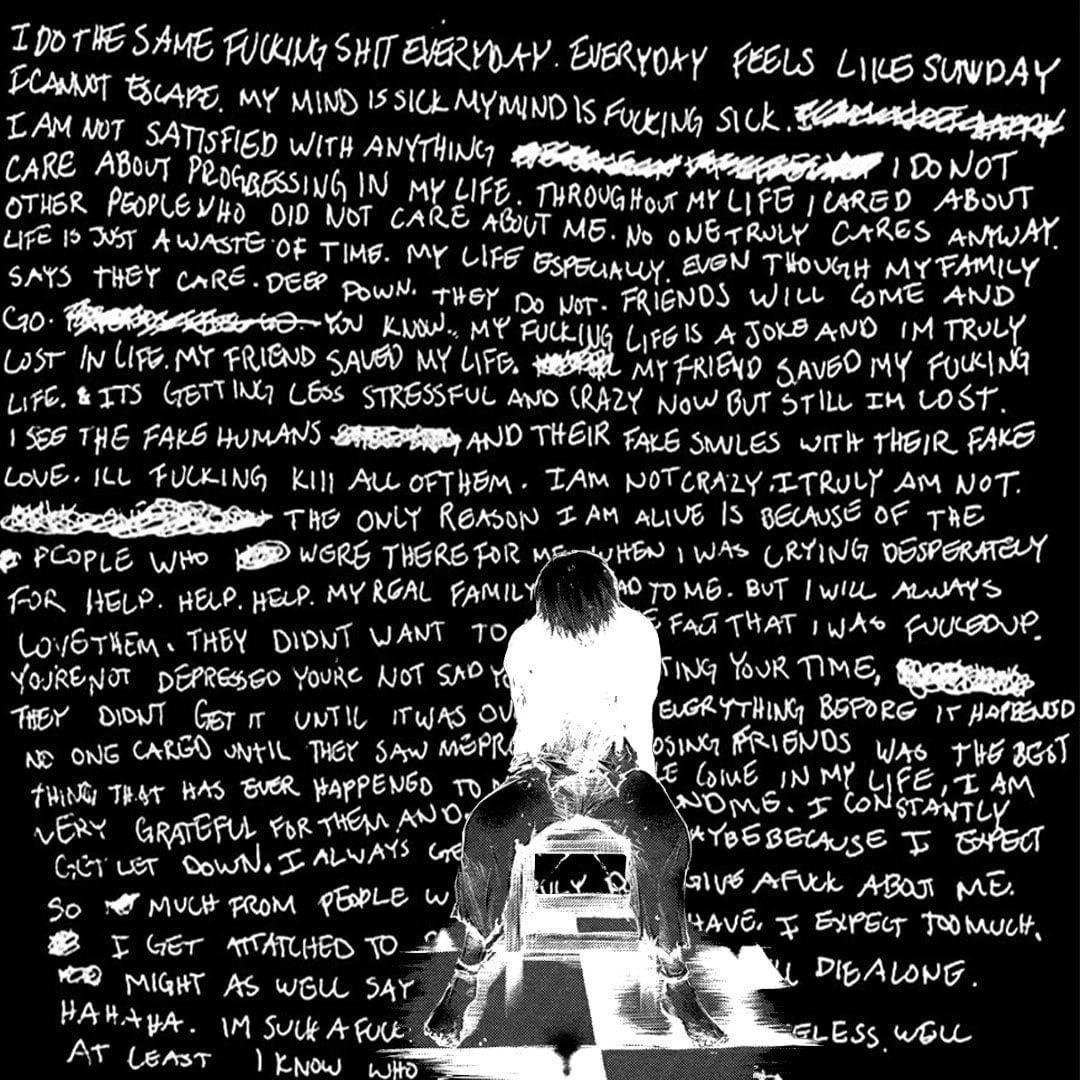 I DO THE SAME FUCKING SHIT EVERYDAY. EVERYDAY FEELS LIKE SUNDAY
I CANNOT ESCAPE. MY MIND IS SICK MY MIND IS FUCKING SICK.
I AM NOT SATISFIED WITH ANYTHING I DO NOT
CARE ABOUT PROGRESSING IN MY LIFE. THROUGHOUT MY LIFE I CARED ABOUT
OTHER PEOPLE WHO DID NOT CARE ABOUT ME. NO ONE TRULY CARES ANYWAY.
LIFE IS JUST A WASTE OF TIME. MY LIFE ESPECIALLY. EVEN THOUGH MY FAMILY
SAYS THEY CARE. DEEP DOWN. THEY DO NOT. FRIENDS WILL COME AND
GO. YOU KNOW.. MY FUCKING LIFE IS A JOKE AND IM TRULY
LOST IN LIFE. MY FRIEND SAVED MY LIFE. MY FRIEND SAVED MY FUCKING
LIFE. & ITS GETTING LESS STRESSFUL AND CRAZY NOW BUT STILL IM LOST.
I SEE THE FAKE HUMANS AND THEIR FAKE SMILES WITH THEIR FAKE
LOVE. ILL FUCKING KIll ALL OF THEM. I AM NOT CRAZY. I TRULY AM NOT.
THE ONLY REASON I AM ALIVE IS BECAUSE OF THE
PEOPLE WHO WERE THERE FOR ME WHEN I WAS CRYING DESPERATELY
FOR HELP. HELP. HELP. MY REAL FAMILY TO ME. BUT I WILL ALWAYS
LOVE THEM. THEY DIDNT WANT TO FACT THAT I WAS FUCKED UP.
YOU'RE NOT DEPRESSED YOURE NOT SAD TING YOUR TIME,
THEY DIDNT GET IT UNTIL IT WAS EVERYTHING BEFORE IT HAPPENED
NO ONE CARED UNTIL THEY SAW ME OSING FRIENDS WAS THE BEST
THING THAT HAS EVER HAPPENED TO COME IN MY LIFE, I AM
VERY GRATEFUL FOR THEM AND ND ME. I CONSTANTLY
GET LET DOWN. I ALWAYS GE AYBE BECAUSE I EXPECT
SO MUCH FROM PEOPLE W GIVE A FUCK ABOUT ME.
I GET ATTATCHED TO HAVE. I EXPECT TOO MUCH.
MIGHT AS WELL SAY DIE ALONE.
HAHAHA. IM SUCH A FUCK ELESS. WELL
AT LEAST I KNOW WHO